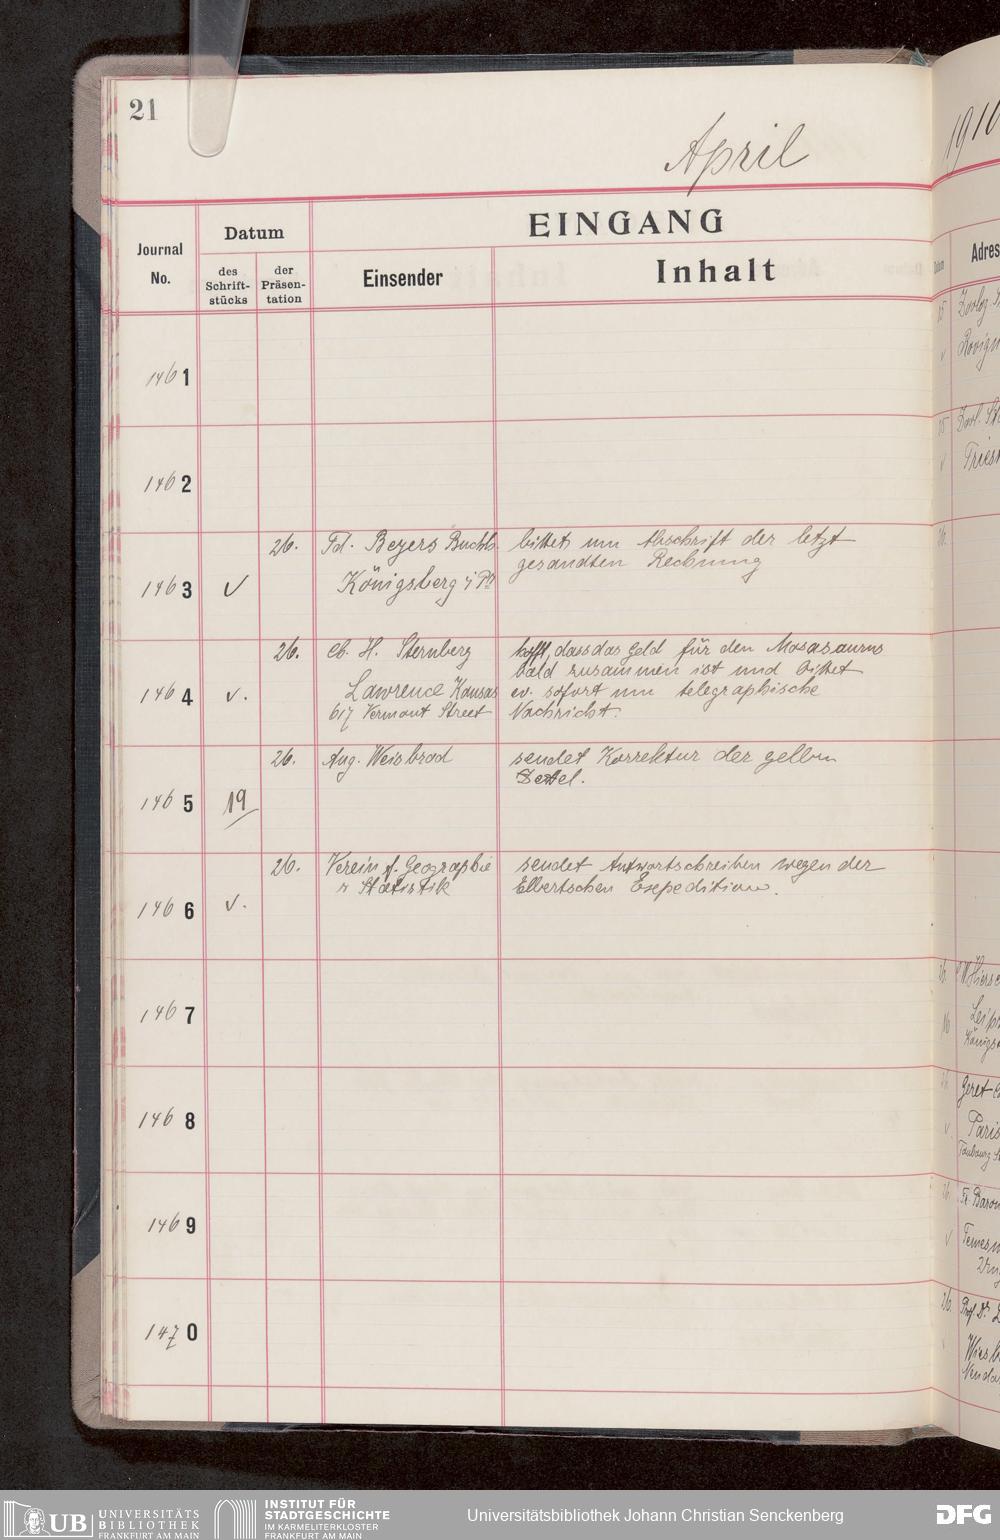 21
April
1910
Journal No.
Datum
des Schrift-stücks
der Präsen-tation
EINGANG
Einsender
Inhalt
Datum
Adres
1461
1462
1463
✓
26.
Fd. Beyers Buchh.
Königsberg i/Pr
bittet um Abschrift der letzt
gesandten Rechnung
1464
v.
26.
Ch. H. Sternberg
Lawrence Kansas
617 Vermont Street
hofft, dass das Geld für den Mosasaurus
bald zusammen ist und bittet
ev. sofort um telegraphische
Nachricht.
1465
19
26.
Aug. Weisbrod
sendet Korrektur der gelben
Zettel.
1466
v.
26.
Verein f. Geographie
u Statistik
sendet Antwortschreiben wegen der
Elbertschen Expedition.
1467
1468
1469
1470
Paris
Leip
UB
UNIVERSITÄTS
BIBLIOTHEK
FRANKFURT AM MAIN
INSTITUT FÜR
STADTGESCHICHTE
IM KARMELITERKLOSTER
FRANKFURT AM MAIN
Universitätsbibliothek Johann Christian Senckenberg
DFG